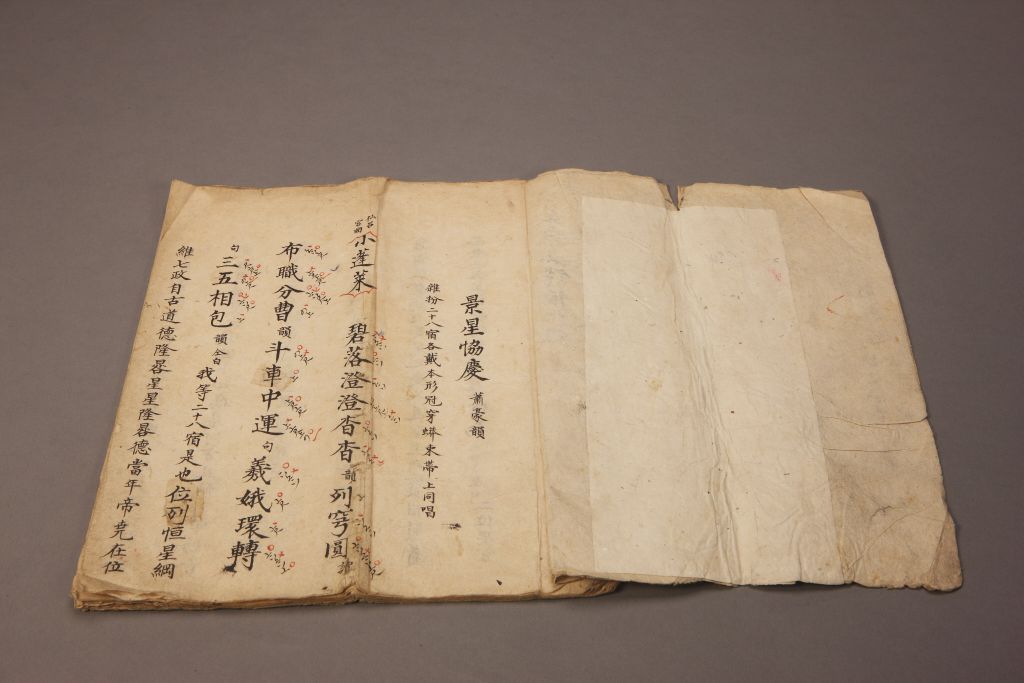 景星協慶 蕭豪韻
雜扮二十八宿各戴本形冠穿蟒束帶上同唱
仙呂宮曲
小蓬萊 碧落澄澄杳杳韻列穹圓
布職分曹韻斗車中運句羲娥環轉
句三五相包韻仝白我等二十八宿是也位列恒星綱
維七政自古道德隆晷星星隆晷德當年帝堯在位